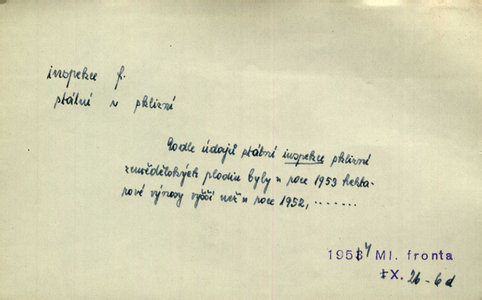 inspekce f.
státní i sklizní
Podle údajů státní inspekce sklizní
zemědělských plodin byly v roce 1953 hekta-
rové výnosy vyšší než v roce 1952, .......
1954 Ml. fronta
IX. 26-6d